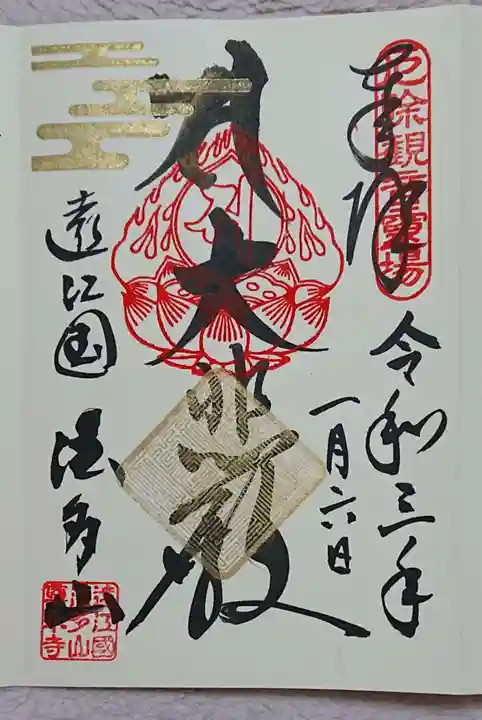 厄除観音靈場
奉拝
令和三年
一月六日
大悲殿
遠江国
法多山
遠江國
法多山
尊永寺